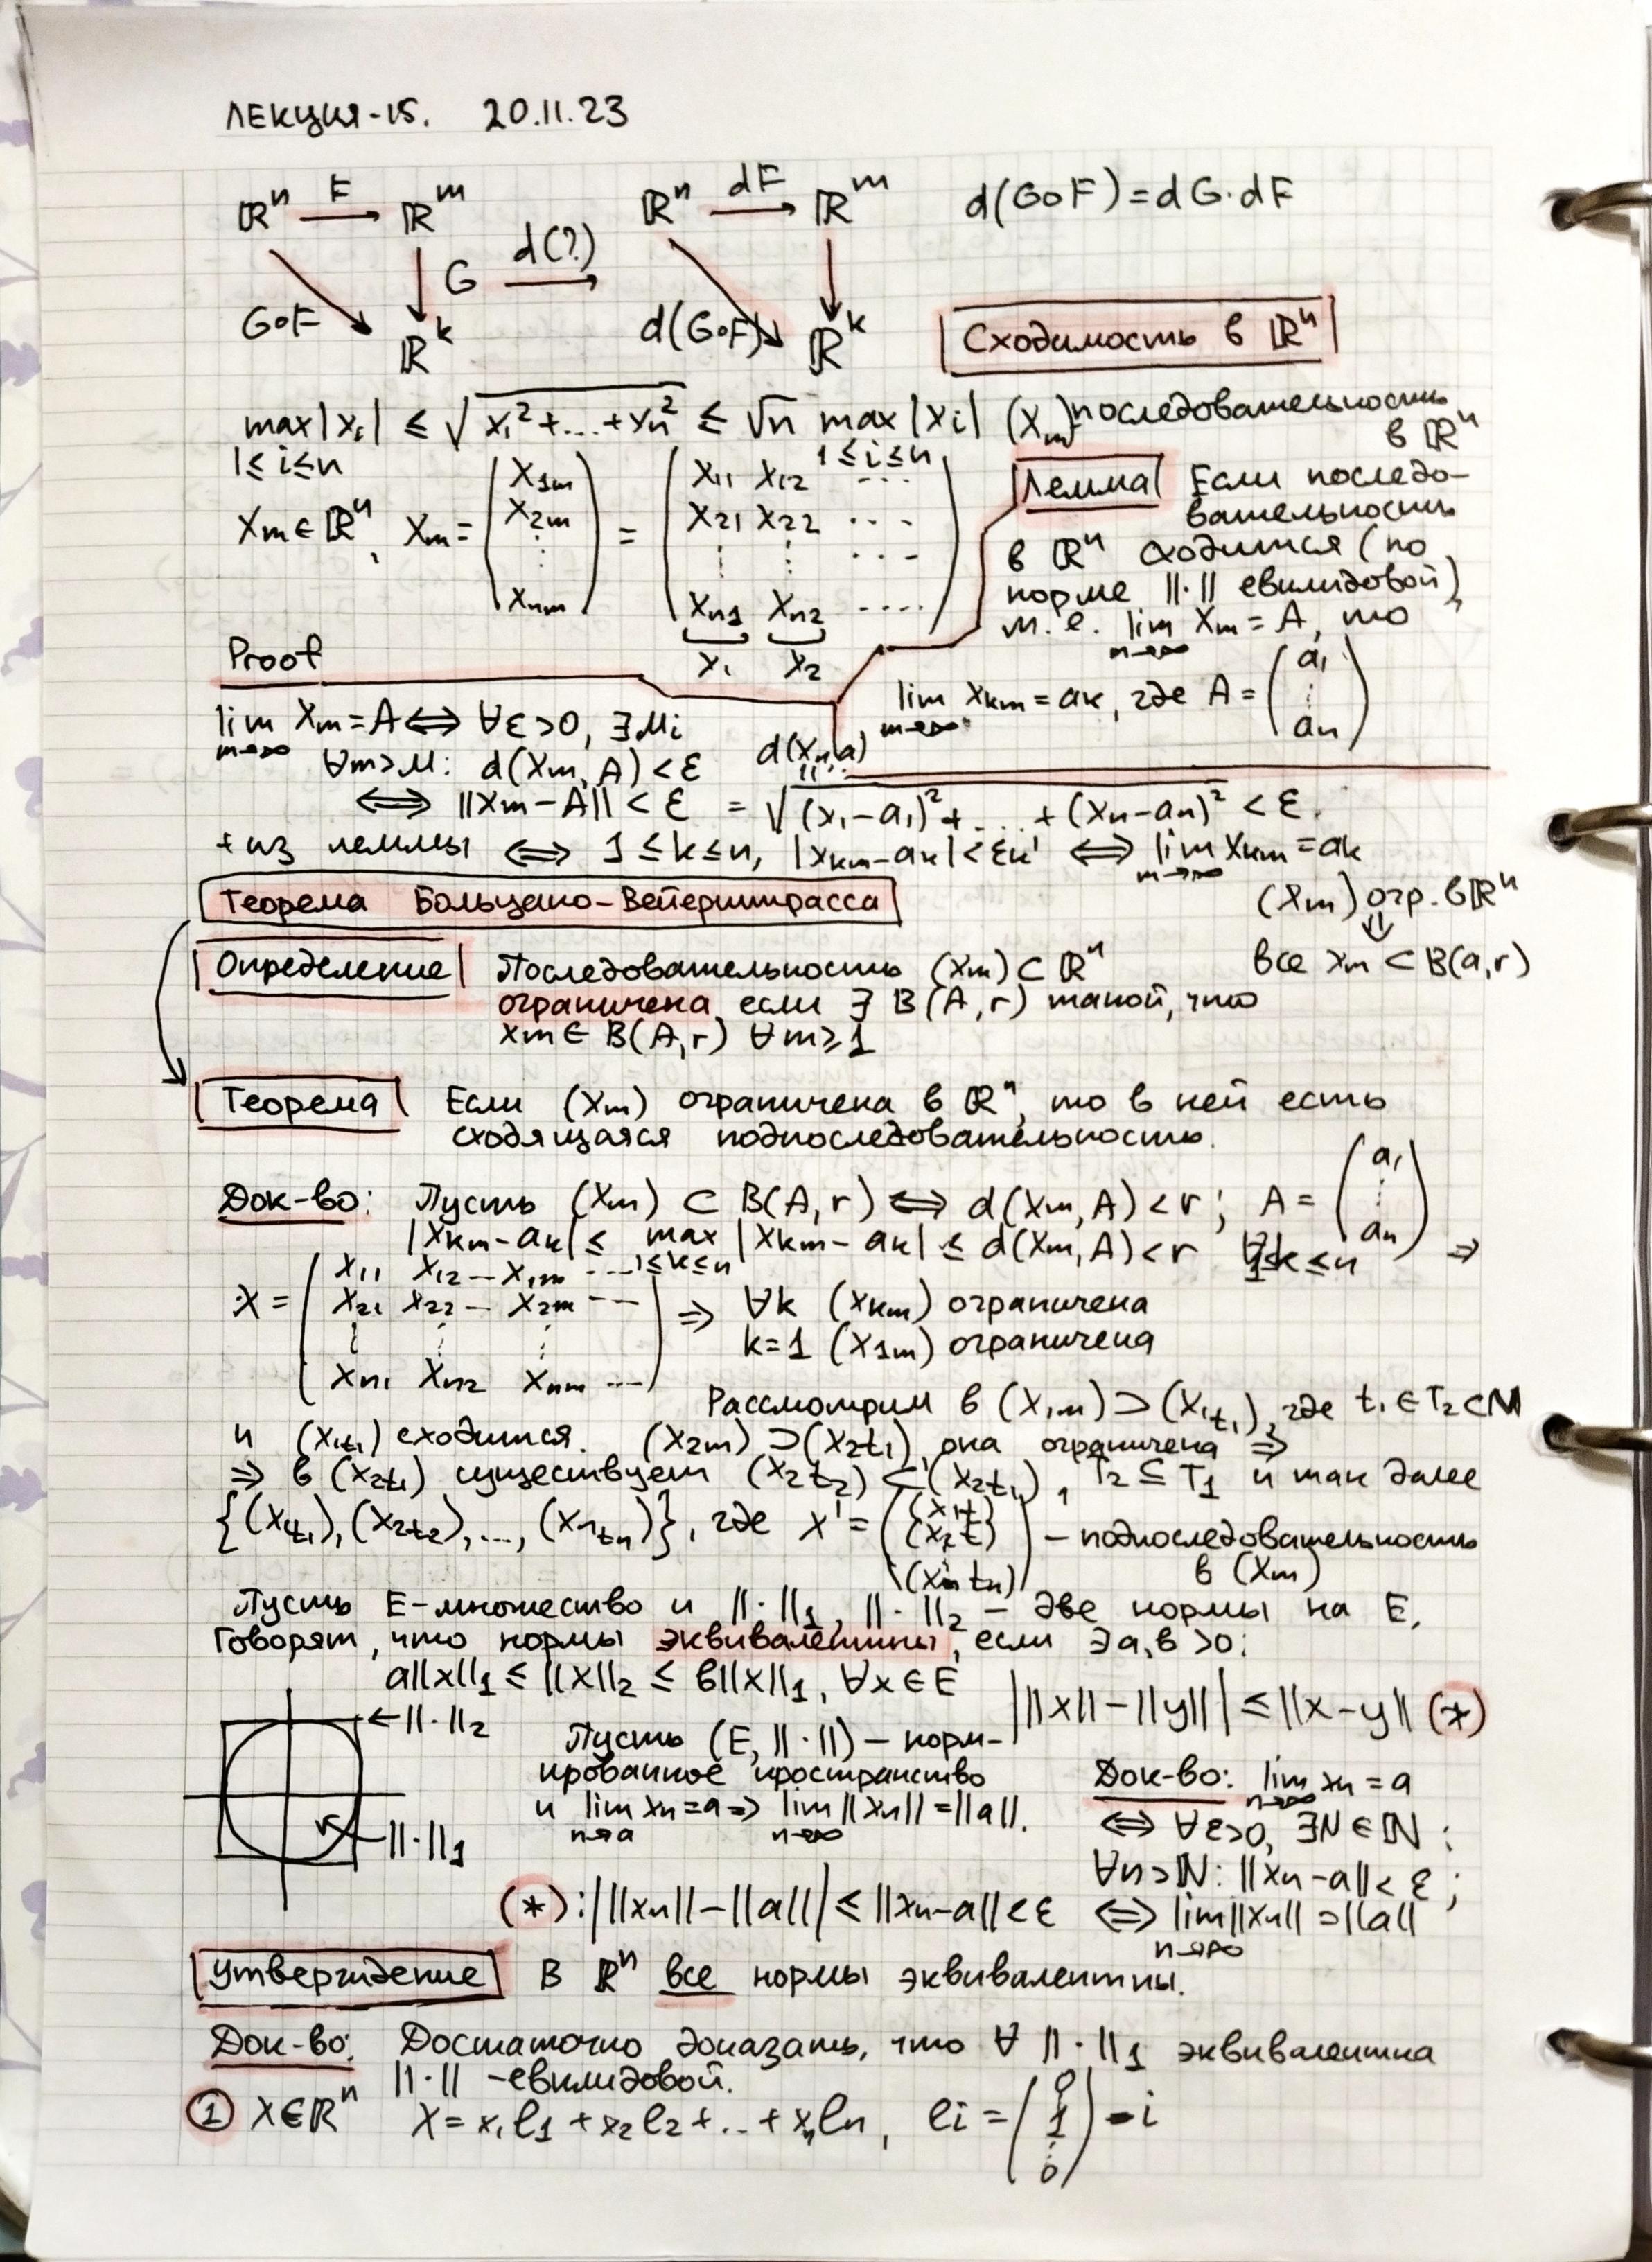 ЛЕКЦИЯ-15. 20.11.23
ℝⁿ F→ ℝᵐ ℝⁿ dF→ ℝᵐ d(G∘F)=dG·dF
G d(?)→
G∘F ℝᵏ d(G∘F) ℝᵏ
Сходимость в ℝⁿ
max|xᵢ| ≤ √(x₁²+...+xₙ²) ≤ √n max|xᵢ|
1≤i≤n 1≤i≤n
(Xm) последовательность
в ℝⁿ
Xm∈ℝⁿ, Xm = (x₁m x₂m ⋮ xnm) = (x₁₁ x₁₂ ... x₂₁ x₂₂ ... ⋮ ⋮ ... xn1 xn2 ....)
X₁ X₂
Лемма Если последо-
вательность
в ℝⁿ сходится (по
норме ||·|| евклидовой),
т.е. lim Xm = A, то
m→∞
lim xkm = ak, где A = (a₁ ⋮ an)
m→∞
Proof
lim Xm = A ⟺ ∀ε>0, ∃M;
m→∞
∀m>M: d(Xm, A) < ε d(Xm, a)
⟺ ||Xm – A|| < ε = √((x₁–a₁)²+...+(xn–an)²) < ε.
+из леммы ⟺ 1≤k≤n, |xkm–ak|<εk' ⟺ lim xkm = ak
m→∞
Теорема Больцано-Вейерштрасса
(Xm) огр. в ℝⁿ
⇓
все xm ⊂ B(a,r)
Определение Последовательность (Xm) ⊂ ℝⁿ
ограничена, если ∃ B(A,r) такой, что
xm ∈ B(A,r) ∀m≥1
Теорема Если (Xm) ограничена в ℝⁿ, то в ней есть
сходящаяся подпоследовательность.
Док-во: Пусть (Xm) ⊂ B(A,r) ⟺ d(Xm,A)<r; A = (a₁ ⋮ an)
|xkm–ak| ≤ max |xkm–ak| ≤ d(Xm,A)<r ∀1≤k≤n ⇒
1≤k≤n
X = (x₁₁ x₁₂ – x₁m ... x₂₁ x₂₂ – x₂m -- ⋮ ⋮ ⋮ xn1 xn2 xnm ...) ⇒ ∀k (xkm) ограничена
k=1 (x₁m) ограничена
Рассмотрим в (x₁m) ⊃ (x₁t₁), где t₁∈T₂⊂ℕ
и (x₁t₁) сходится. (x₂m) ⊃ (x₂t₁), она ограничена ⇒
⇒ в (x₂t₁) существует (x₂t₂) ⊂ (x₂t₁), T₂ ⊆ T₁ и так далее
{(xt₁), (x₂t₂), ..., (xntn)}, где X' = ((x₁t) (x₂t) ⋮ (xntn)) – подпоследовательность
в (Xm)
Пусть E-множество и ||·||₁, ||·||₂ – две нормы на E.
Говорят, что нормы эквивалентны, если ∃a,b >0:
a||x||₁ ≤ ||x||₂ ≤ b||x||₁, ∀x∈E
| ||x|| – ||y|| | ≤ ||x–y|| (*)
←||·||₂
||·||₁
Пусть (E, ||·||) – норм-
ированное пространство
и lim xn = a ⇒ lim ||xn|| = ||a||.
n→a n→∞
Док-во: lim xn = a
n→∞
⟺ ∀ε>0, ∃N∈ℕ:
∀n>ℕ: ||xn–a|| < ε;
(*): | ||xn|| – ||a|| | ≤ ||xn–a|| < ε ⟺ lim||xn|| = ||a||
n→∞
Утверждение В ℝⁿ все нормы эквивалентны.
Док-во: Достаточно доказать, что ∀ ||·||₁ эквивалентна
||·|| -евклидовой.
① X∈ℝⁿ X = x₁e₁ + x₂e₂ + ... + xnen, ei = (0 1 ⋮ 0) – i